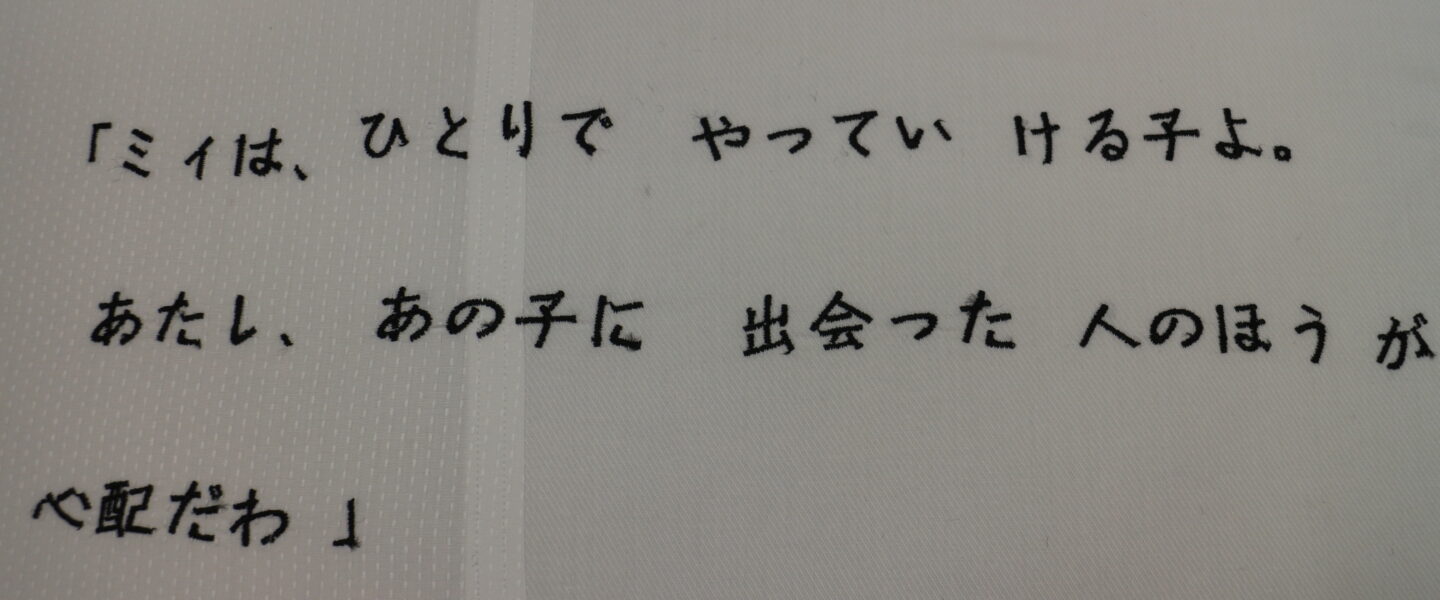 「ミィは、ひとりで やっていける子よ。
あたし、あの子に 出会った 人のほうが
心配だわ」